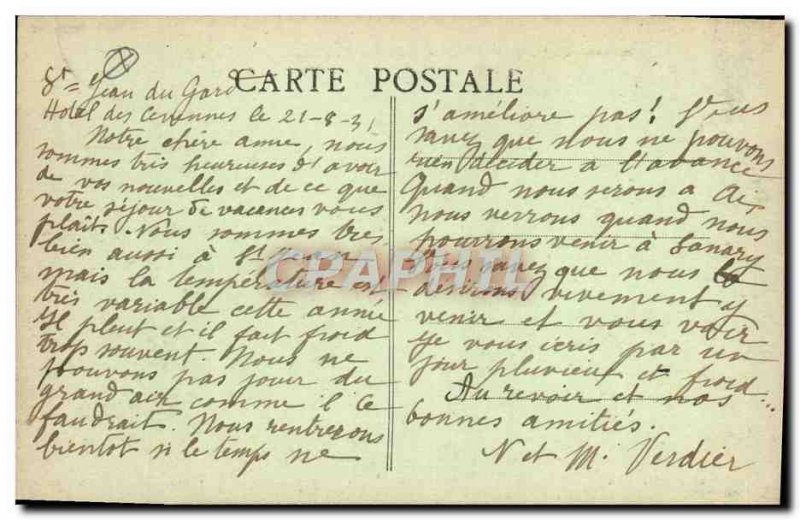 CARTE POSTALE
St = Jean du Gard
Hotel des Cevennes le 21-8-31
Notre chère amie, nous
sommes très heureuses d'avoir
de vos nouvelles et de ce que
votre séjour de vacances vous
plaît. Nous sommes très
bien aussi à St Jean
mais la température est
très variable cette année
Il pleut et il fait froid
trop souvent. Nous ne
pouvons pas jouir du
grand air comme il le
faudrait. Nous rentrerons
bientot si le temps ne
s'améliore pas! Vous
savez que nous ne pouvons
rien décider à l'avance
Quand nous serons à Aix
nous verrons quand nous
pourrons venir à Sanary
Vous savez que nous
désirons vivement y
venir et vous voir
Je vous écris par un
jour pluvieux et froid...
Au revoir et nos
bonnes amitiés.
N et M. Verdier
CPAPHIL